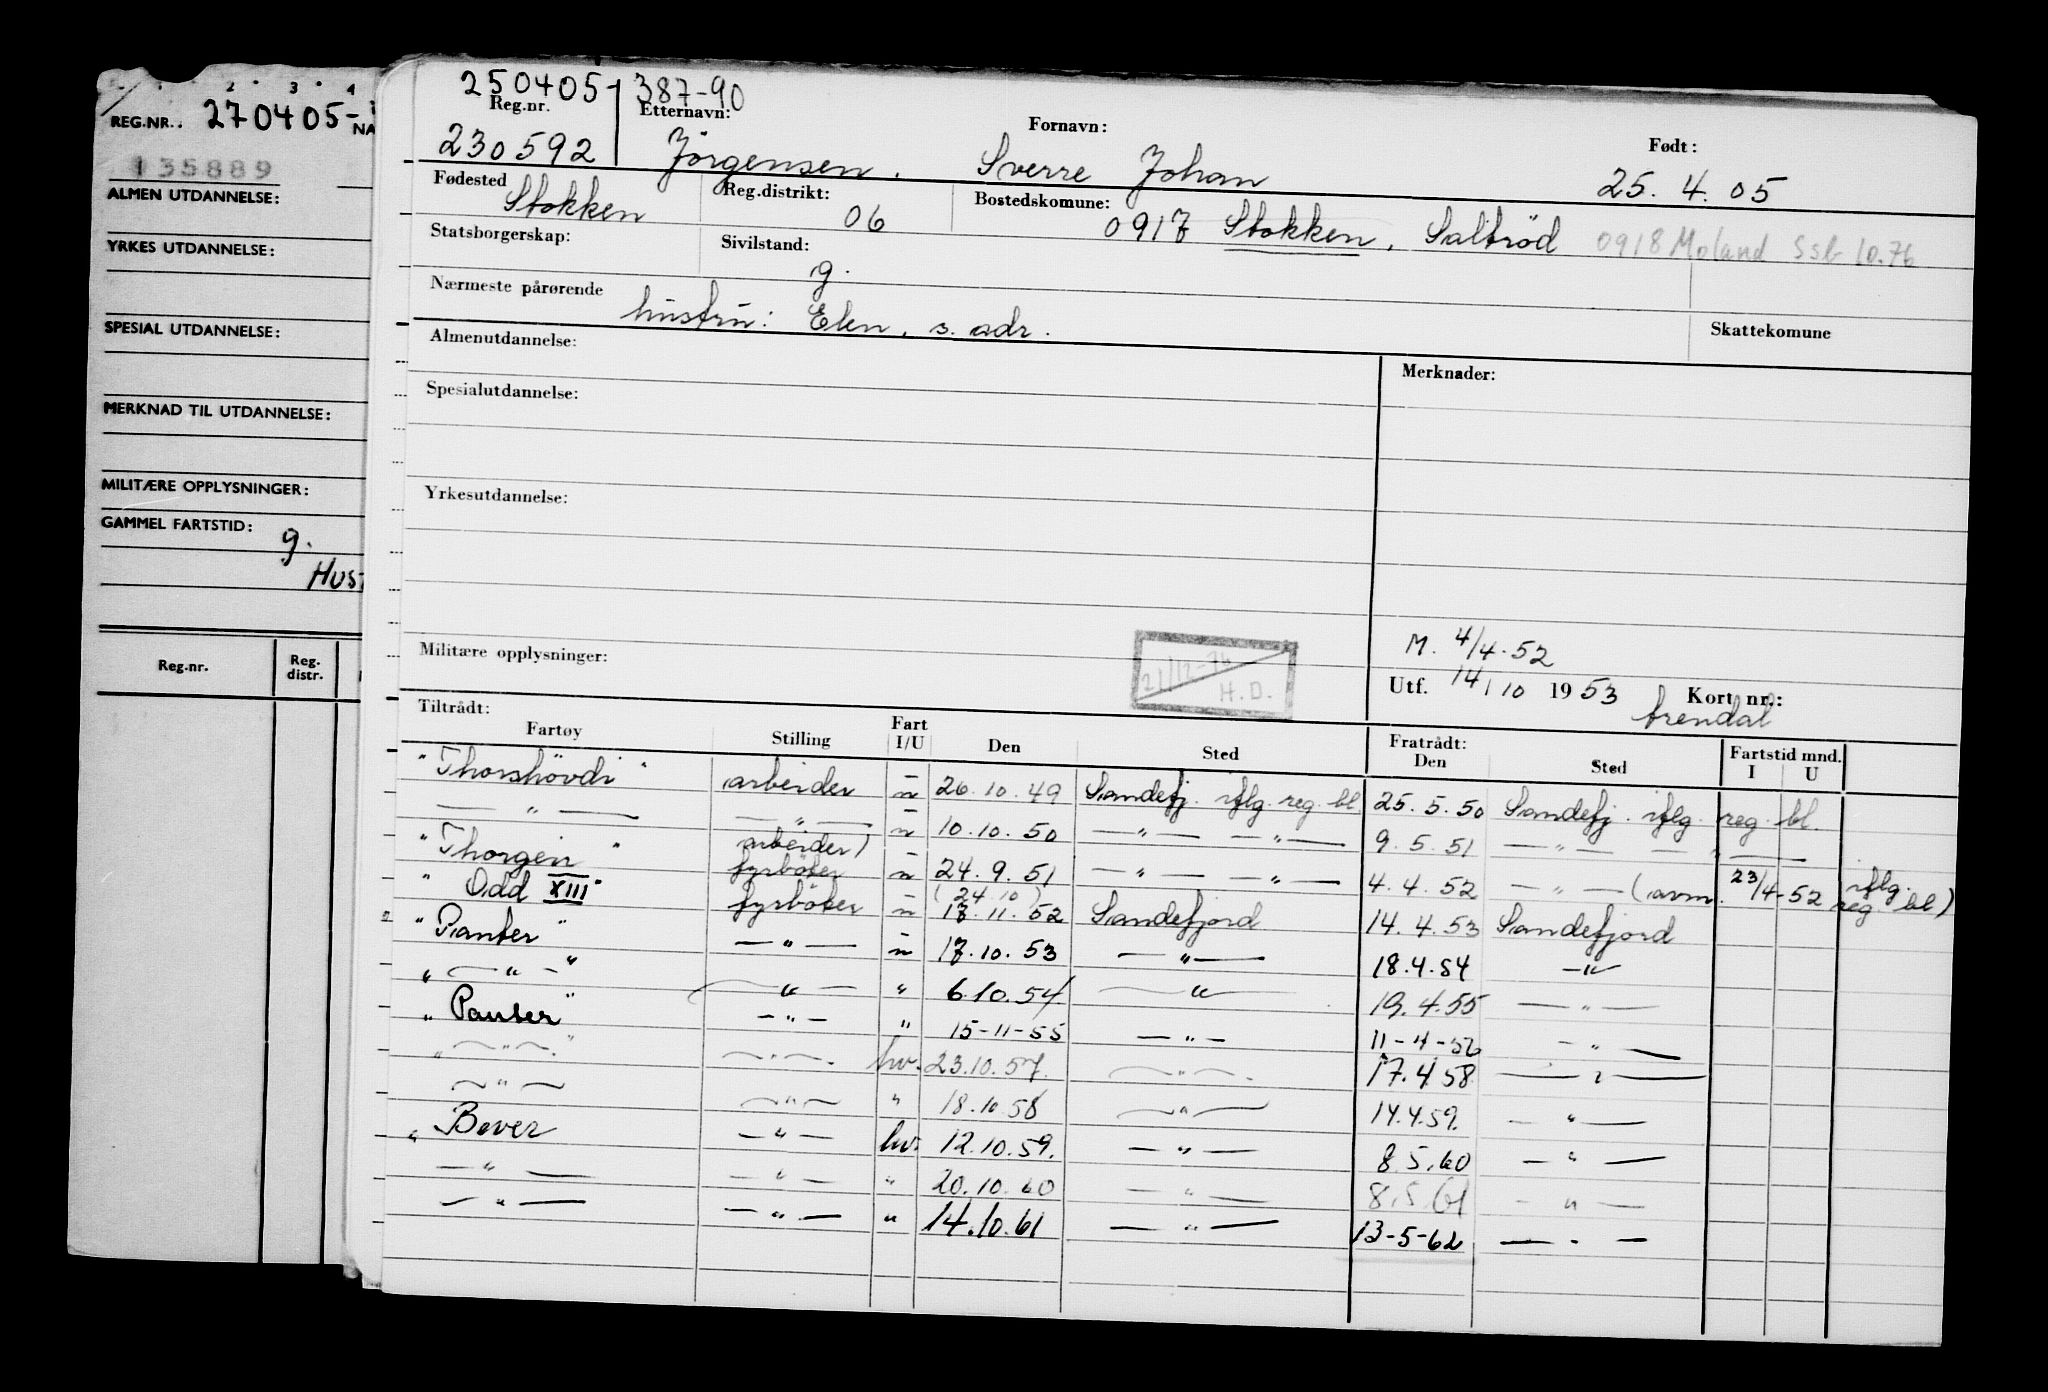 1 2 3 4
REG.NR.. 270405-
NA
135889
ALMEN UTDANNELSE:
YRKES UTDANNELSE:
SPESIAL UTDANNELSE:
MERKNAD TIL UTDANNELSE:
MILITÆRE OPPLYSNINGER:
GAMMEL FARTSTID:
g.
HUST
Reg.nr. Reg. distr.
250405-387-90
Reg.nr. Etternavn: Fornavn: Født:
230592 Jörgensen. Sverre Johan 25. 4. 05
Fødested Reg.distrikt: Bostedskomune:
Stokken 06 0917 Stokken, Saltröd 0918 Moland Ssb 10.76
Statsborgerskap: Sivilstand:
g.
Nærmeste pårørende Skattekomune
hustru: Elen, s. adr.
Almenutdannelse: Merknader:
Spesialutdannelse:
Yrkesutdannelse:
M. 4/4-52
Militære opplysninger: 21/12-76 H.D.
Utf. 14/10 1953 Kort nr.:
Arendal
Tiltrådt: Fratrådt:
Fartøy Stilling Fart I/U Den Sted Den Sted Fartstid mnd. I U
"Thorshövdi" arbeider u 26.10.49 Sandefj. iflg. reg. bl. 25.5.50 Sandefj. iflg. reg. bl.
— " — — " — u 10.10.50 — " — — " — 9.5.51 — " — — " —
"Thorgen" arbeider) fyrböter u 24.9.51 — " — — " — 4.4.52 — " — (avm. 23/4-52 iflg. reg. bl)
"Odd XIII" fyrböter u (24 10) 17.11.52 Sandefjord 14.4.53 Sandefjord
"Panter" — " — u 17.10.53 — " — 18.4.54 — " —
" — " — " — " — " 6.10.54 — " — 19.4.55 — " —
"Panter" — " — " 15-11-55 — " — 11-4-56 — " —
" — " — " — " — hv. 23.10.57. — " — 17.4.58 — " —
— " — — " — " 18.10.58 — " — 14.4.59. — " —
" Bever — " — hv. 12.10.59. — " — 8.5.60 — " —
— " — — " — " 20.10.60 — " — 8.5.61 — " —
— " — — " — " 14.10.61 — " — 13-5-62 — " —